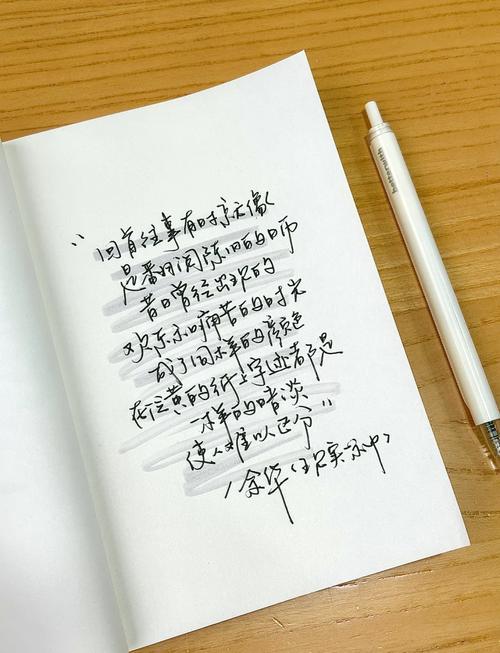 “回首往事有时就像
是翻阅陈旧的日历
昔日曾经出现的
欢乐和痛苦的时光
成了同样的颜色
在泛黄的纸上字迹都是
一样的暗淡
使人难以区分”
/余华《现实一种》